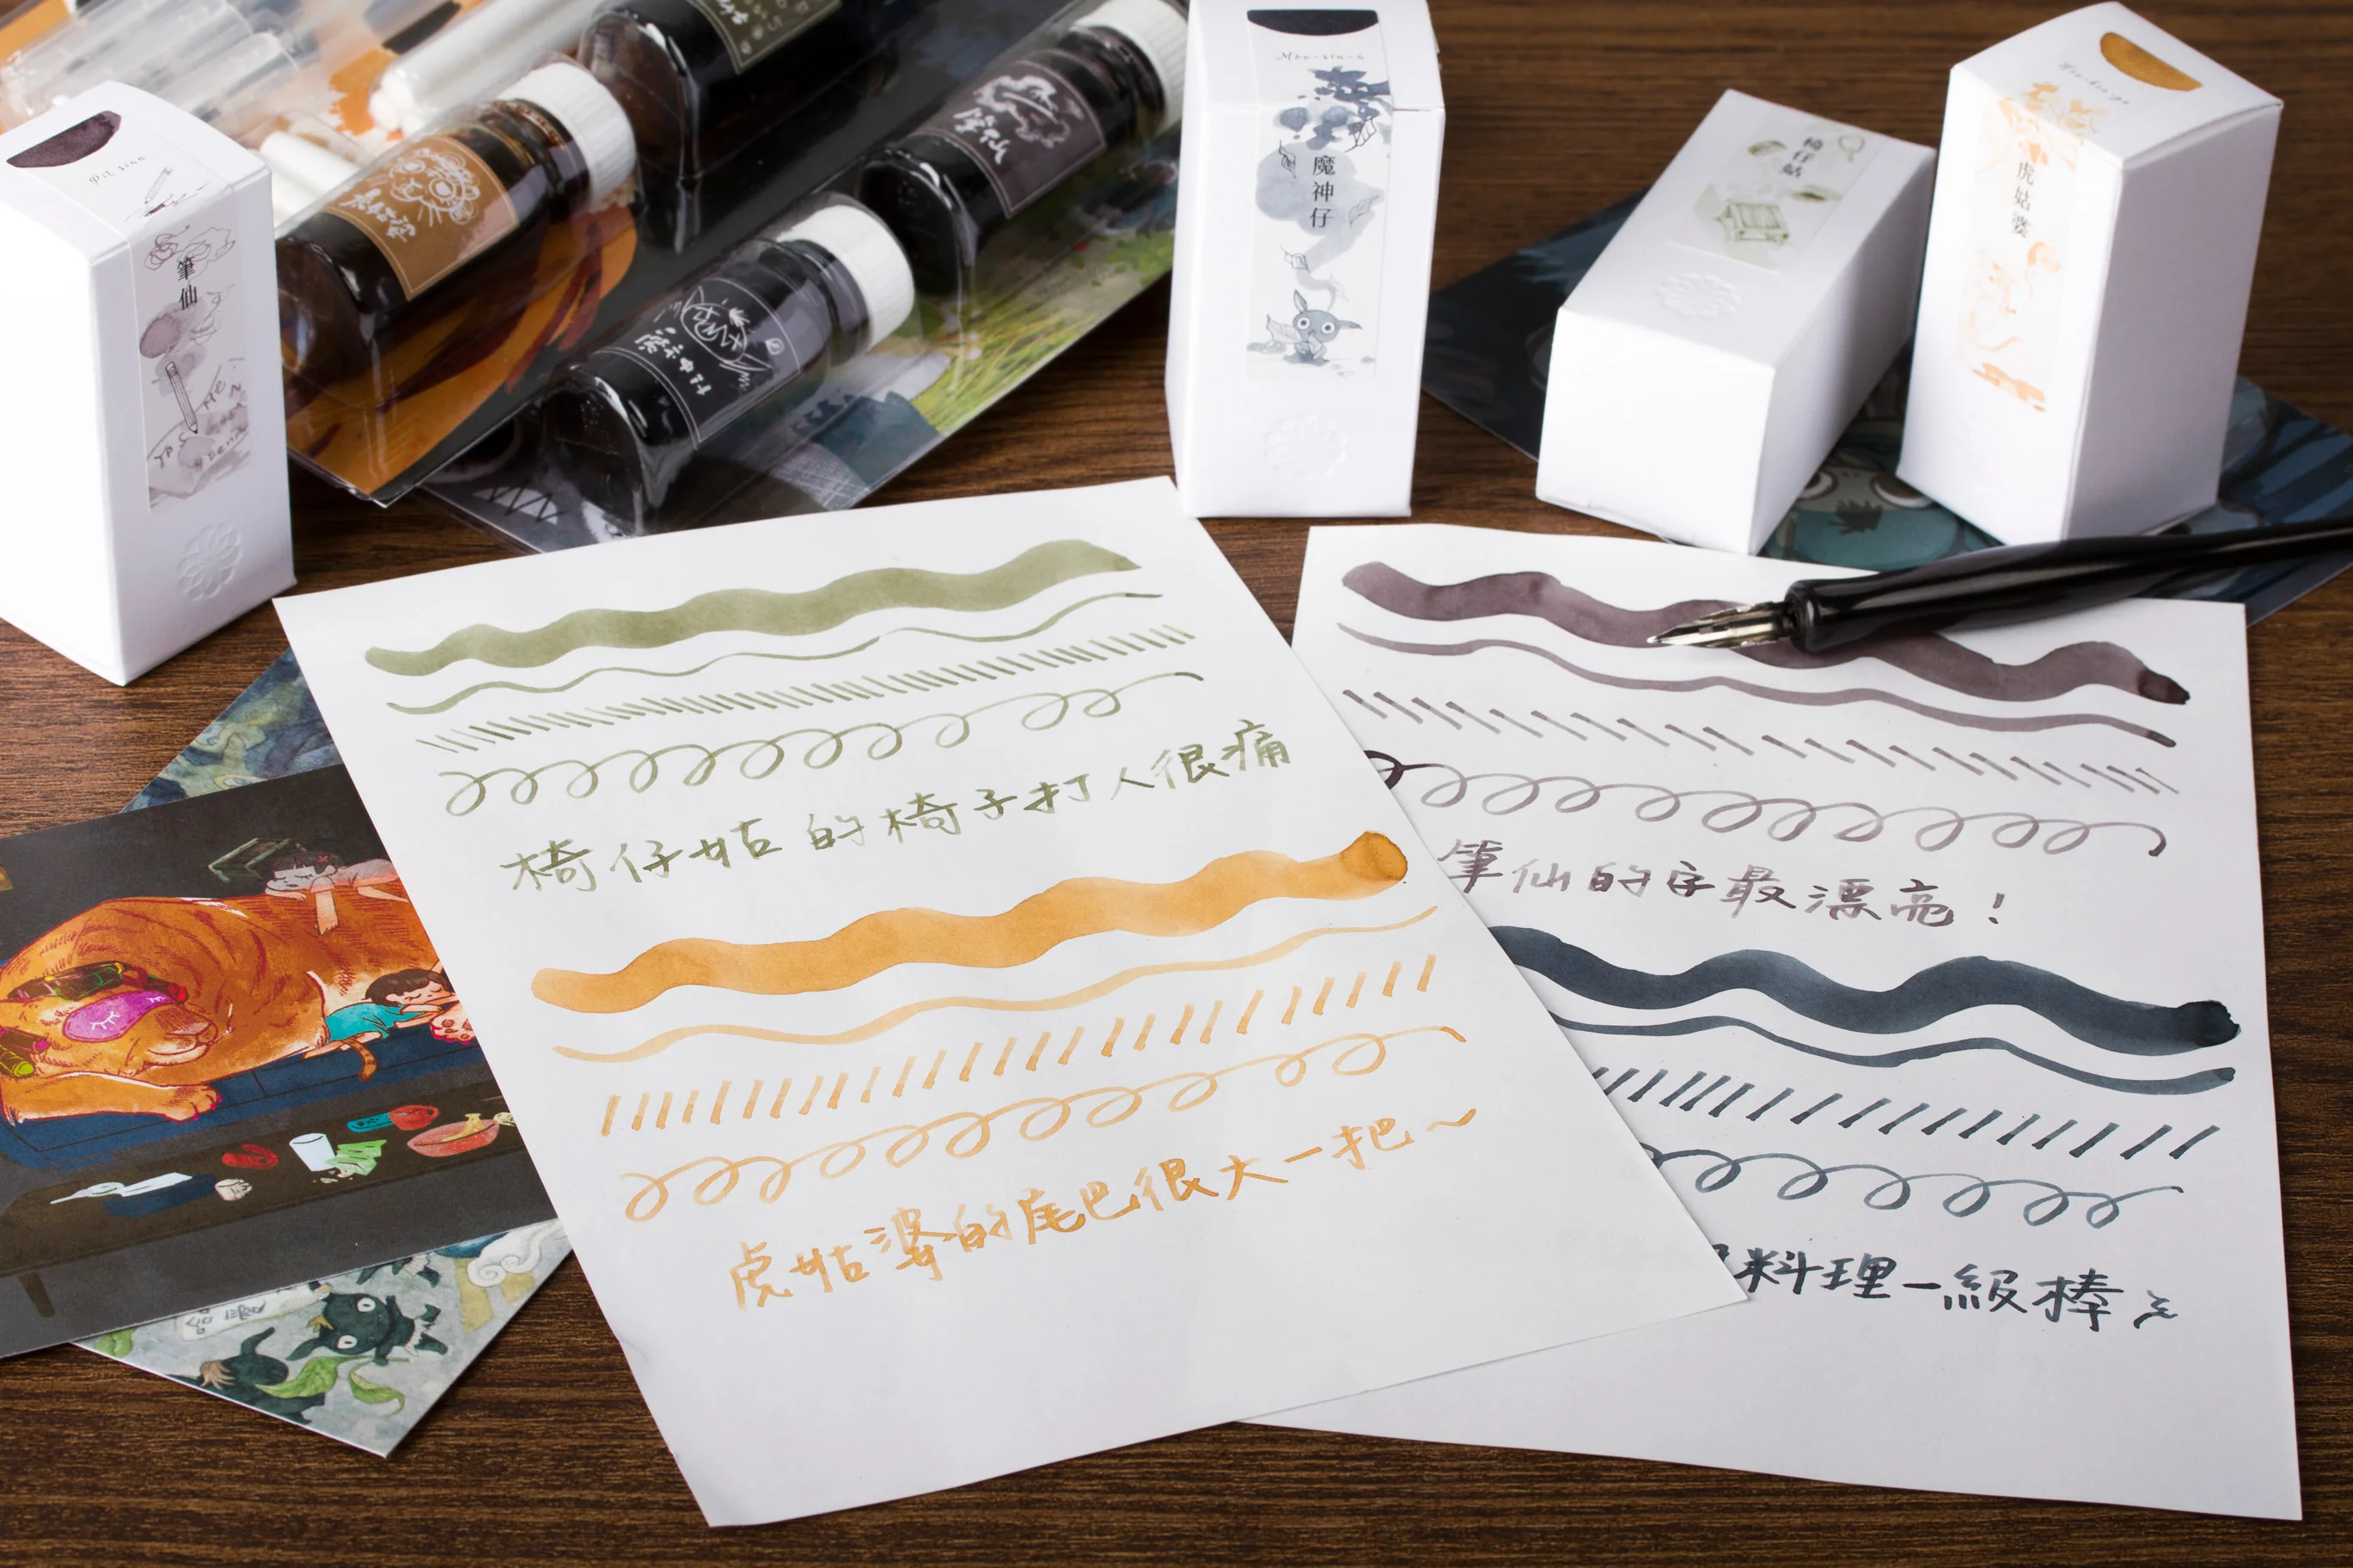 筆仙
虎姑婆
筆仙
魔神仔
魔神仔
椅仔姑
虎姑婆
椅仔姑的椅子打人很痛
虎姑婆的尾巴很大一把～
筆仙的字最漂亮！
料理一級棒